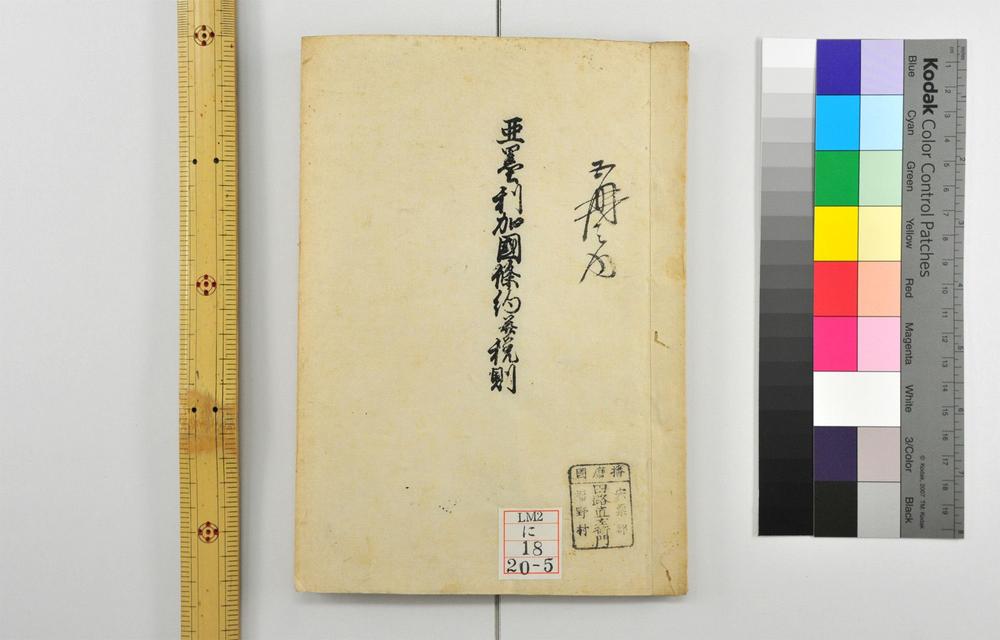 亜墨利加國條約并税則
播磨國
宍粟郡
田路直左衛門
野村
LM2
に
18
20-5
Kodak Color Control Patches
Blue
Cyan
Green
Yellow
Red
Magenta
White
3/Color
Black
© Kodak, 2007 TM: Kodak